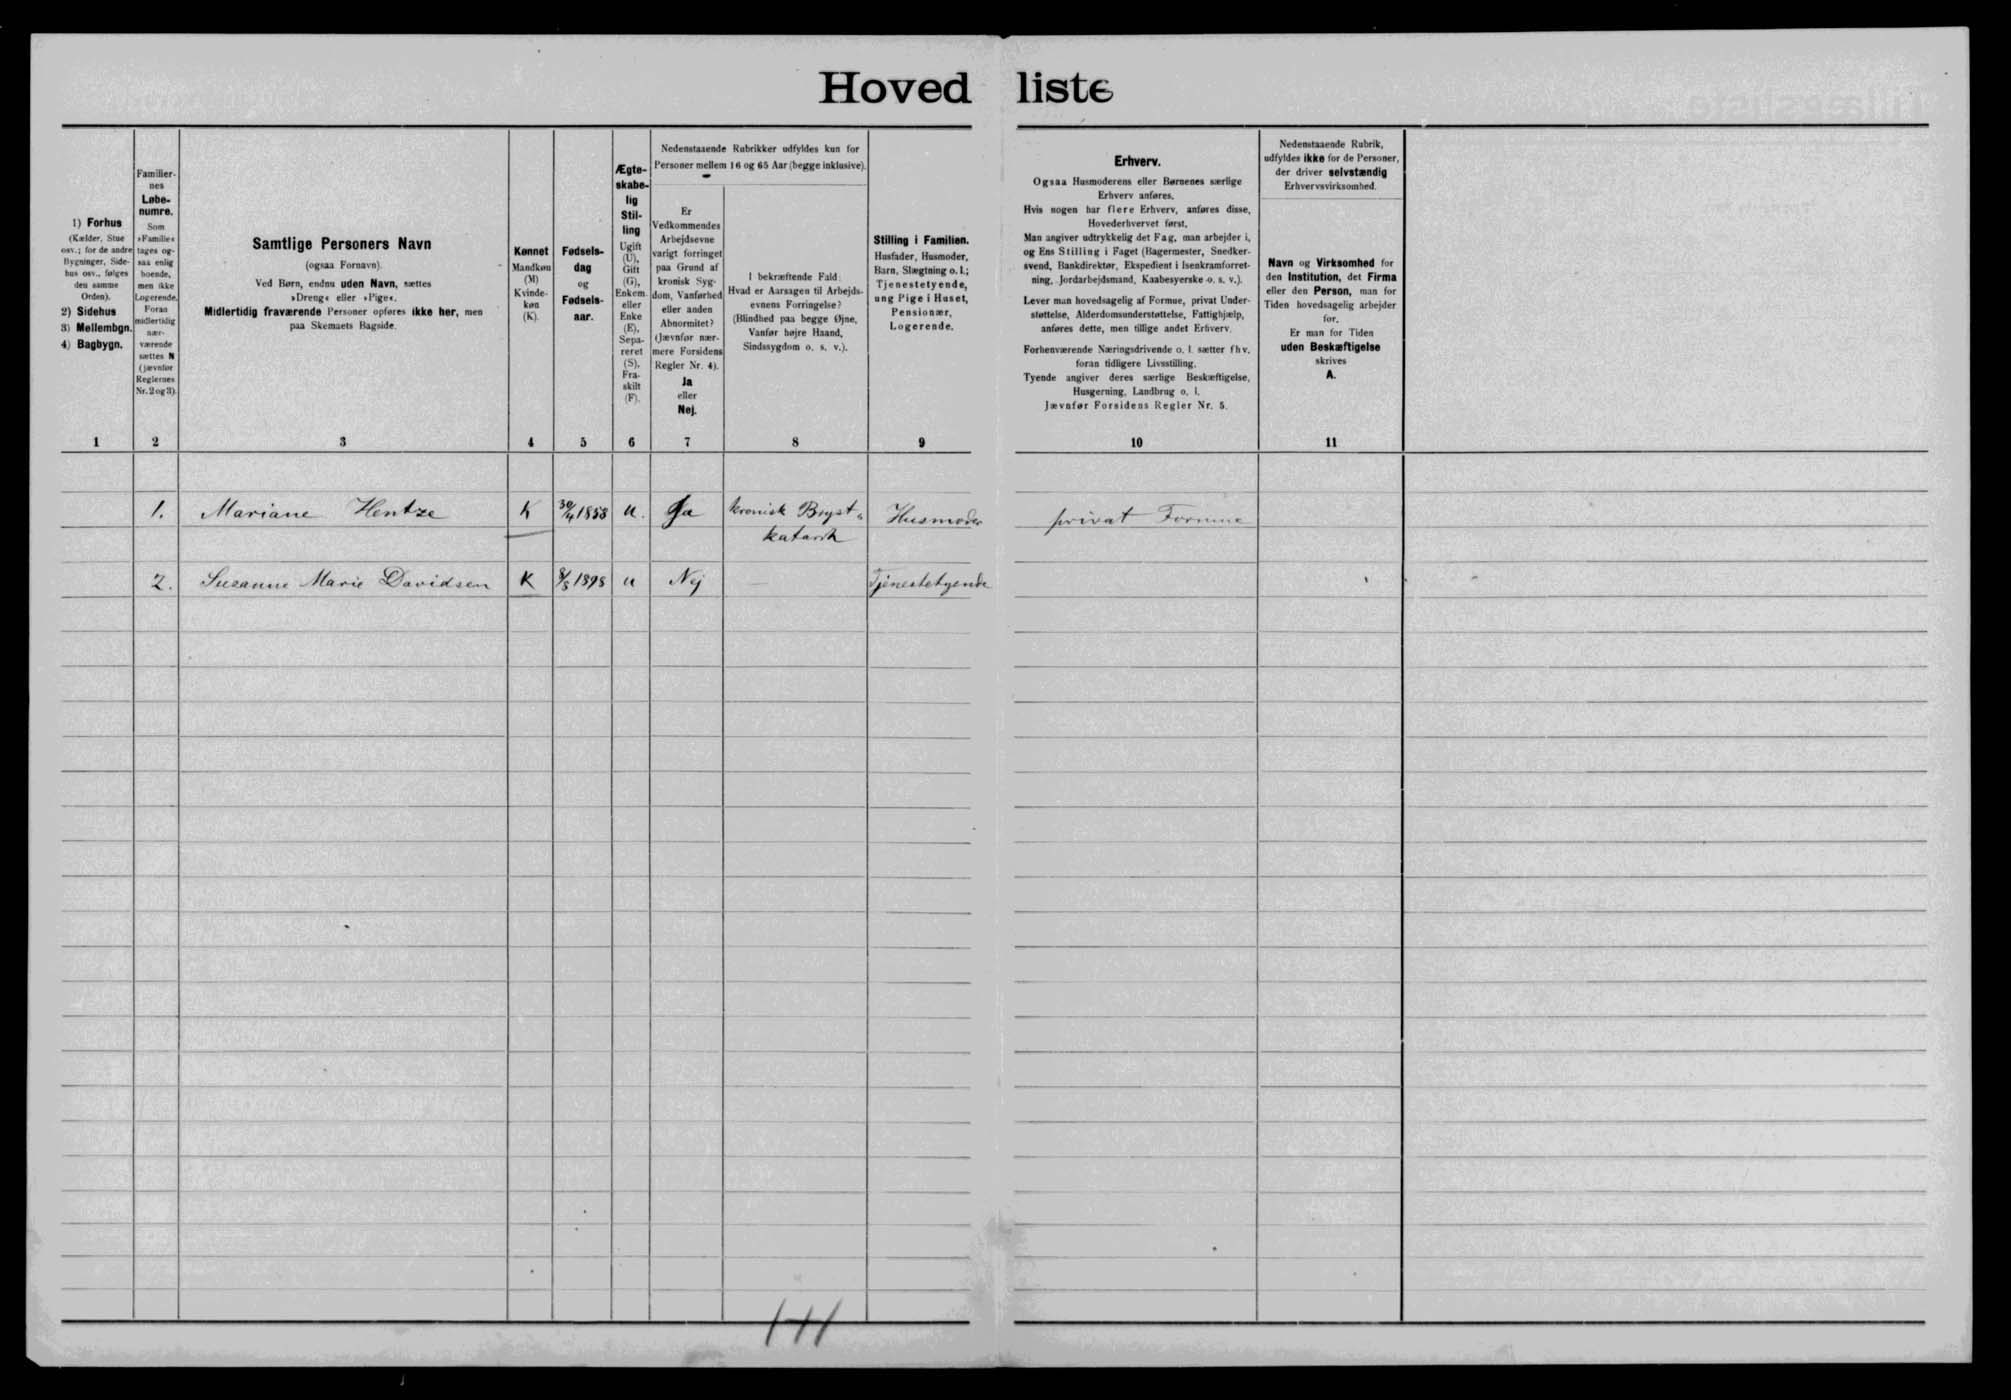 Hovedliste
1) Forhus
(Kælder, Stue
osv.; for de andre
Bygninger, Side-
hus osv., følges
den samme
Orden).
2) Sidehus
3) Mellembgn.
4) Bagbygn.
Familier-
nes
Løbe-
numre.
Som
»Familie«
tages og-
saa enlig
boende,
men ikke
Logerende.
Foran
midlertidig
nær-
værende
sættes N
(jævnfør
Reglernes
Nr. 2 og 3).
Samtlige Personers Navn
(ogsaa Fornavn).
Ved Børn, endnu uden Navn, sættes
»Dreng« eller »Pige«.
Midlertidig fraværende Personer opføres ikke her, men
paa Skemaets Bagside.
Kønnet
Mandkøn
(M)
Kvinde-
køn
(K).
Fødsels-
dag
og
Fødsels-
aar.
Ægte-
skabe-
lig
Stil-
ling
Ugift
(U),
Gift
(G),
Enkem.
eller
Enke
(E),
Sepa-
reret
(S),
Fra-
skilt
(F).
Nedenstaaende Rubrikker udfyldes kun for
Personer mellem 16 og 65 Aar (begge inklusive).
Er
Vedkommendes
Arbejdsevne
varigt forringet
paa Grund af
kronisk Syg-
dom, Vanførhed
eller anden
Abnormitet?
(Jævnfør nær-
mere Forsidens
Regler Nr. 4).
Ja
eller
Nej.
I bekræftende Fald:
Hvad er Aarsagen til Arbejds-
evnens Forringelse?
(Blindhed paa begge Øjne,
Vanfør højre Haand,
Sindssygdom o. s. v.).
Stilling i Familien.
Husfader, Husmoder,
Barn, Slægtning o. l.;
Tjenestetyende,
ung Pige i Huset,
Pensionær,
Logerende.
Erhverv.
Ogsaa Husmoderens eller Børnenes særlige
Erhverv anføres.
Hvis nogen har flere Erhverv, anføres disse,
Hovederhvervet først.
Man angiver udtrykkelig det Fag, man arbejder i,
og Ens Stilling i Faget (Bagermester, Snedker-
svend, Bankdirektør, Ekspedient i Isenkramforret-
ning, Jordarbejdsmand, Kaabesyerske o. s. v.).
Lever man hovedsagelig af Formue, privat Under-
støttelse, Alderdomsunderstøttelse, Fattighjælp,
anføres dette, men tillige andet Erhverv.
Forhenværende Næringsdrivende o. l. sætter fhv.
foran tidligere Livsstilling.
Tyende angiver deres særlige Beskæftigelse,
Husgerning, Landbrug o. l.
Jævnfør Forsidens Regler Nr. 5.
Nedenstaaende Rubrik,
udfyldes ikke for de Personer,
der driver selvstændig
Erhvervsvirksomhed.
Navn og Virksomhed for
den Institution, det Firma
eller den Person, man for
Tiden hovedsagelig arbejder
for.
Er man for Tiden
uden Beskæftigelse
skrives
A.
1 2 3 4 5 6 7 8 9 10 11
1. Mariane Hentze K 30/4 1853 U. Ja kronisk Bryst- Husmoder privat Formue
katarrh
2. Susanne Marie Davidsen K 8/5 1898 U Nej — Tjenestetyende